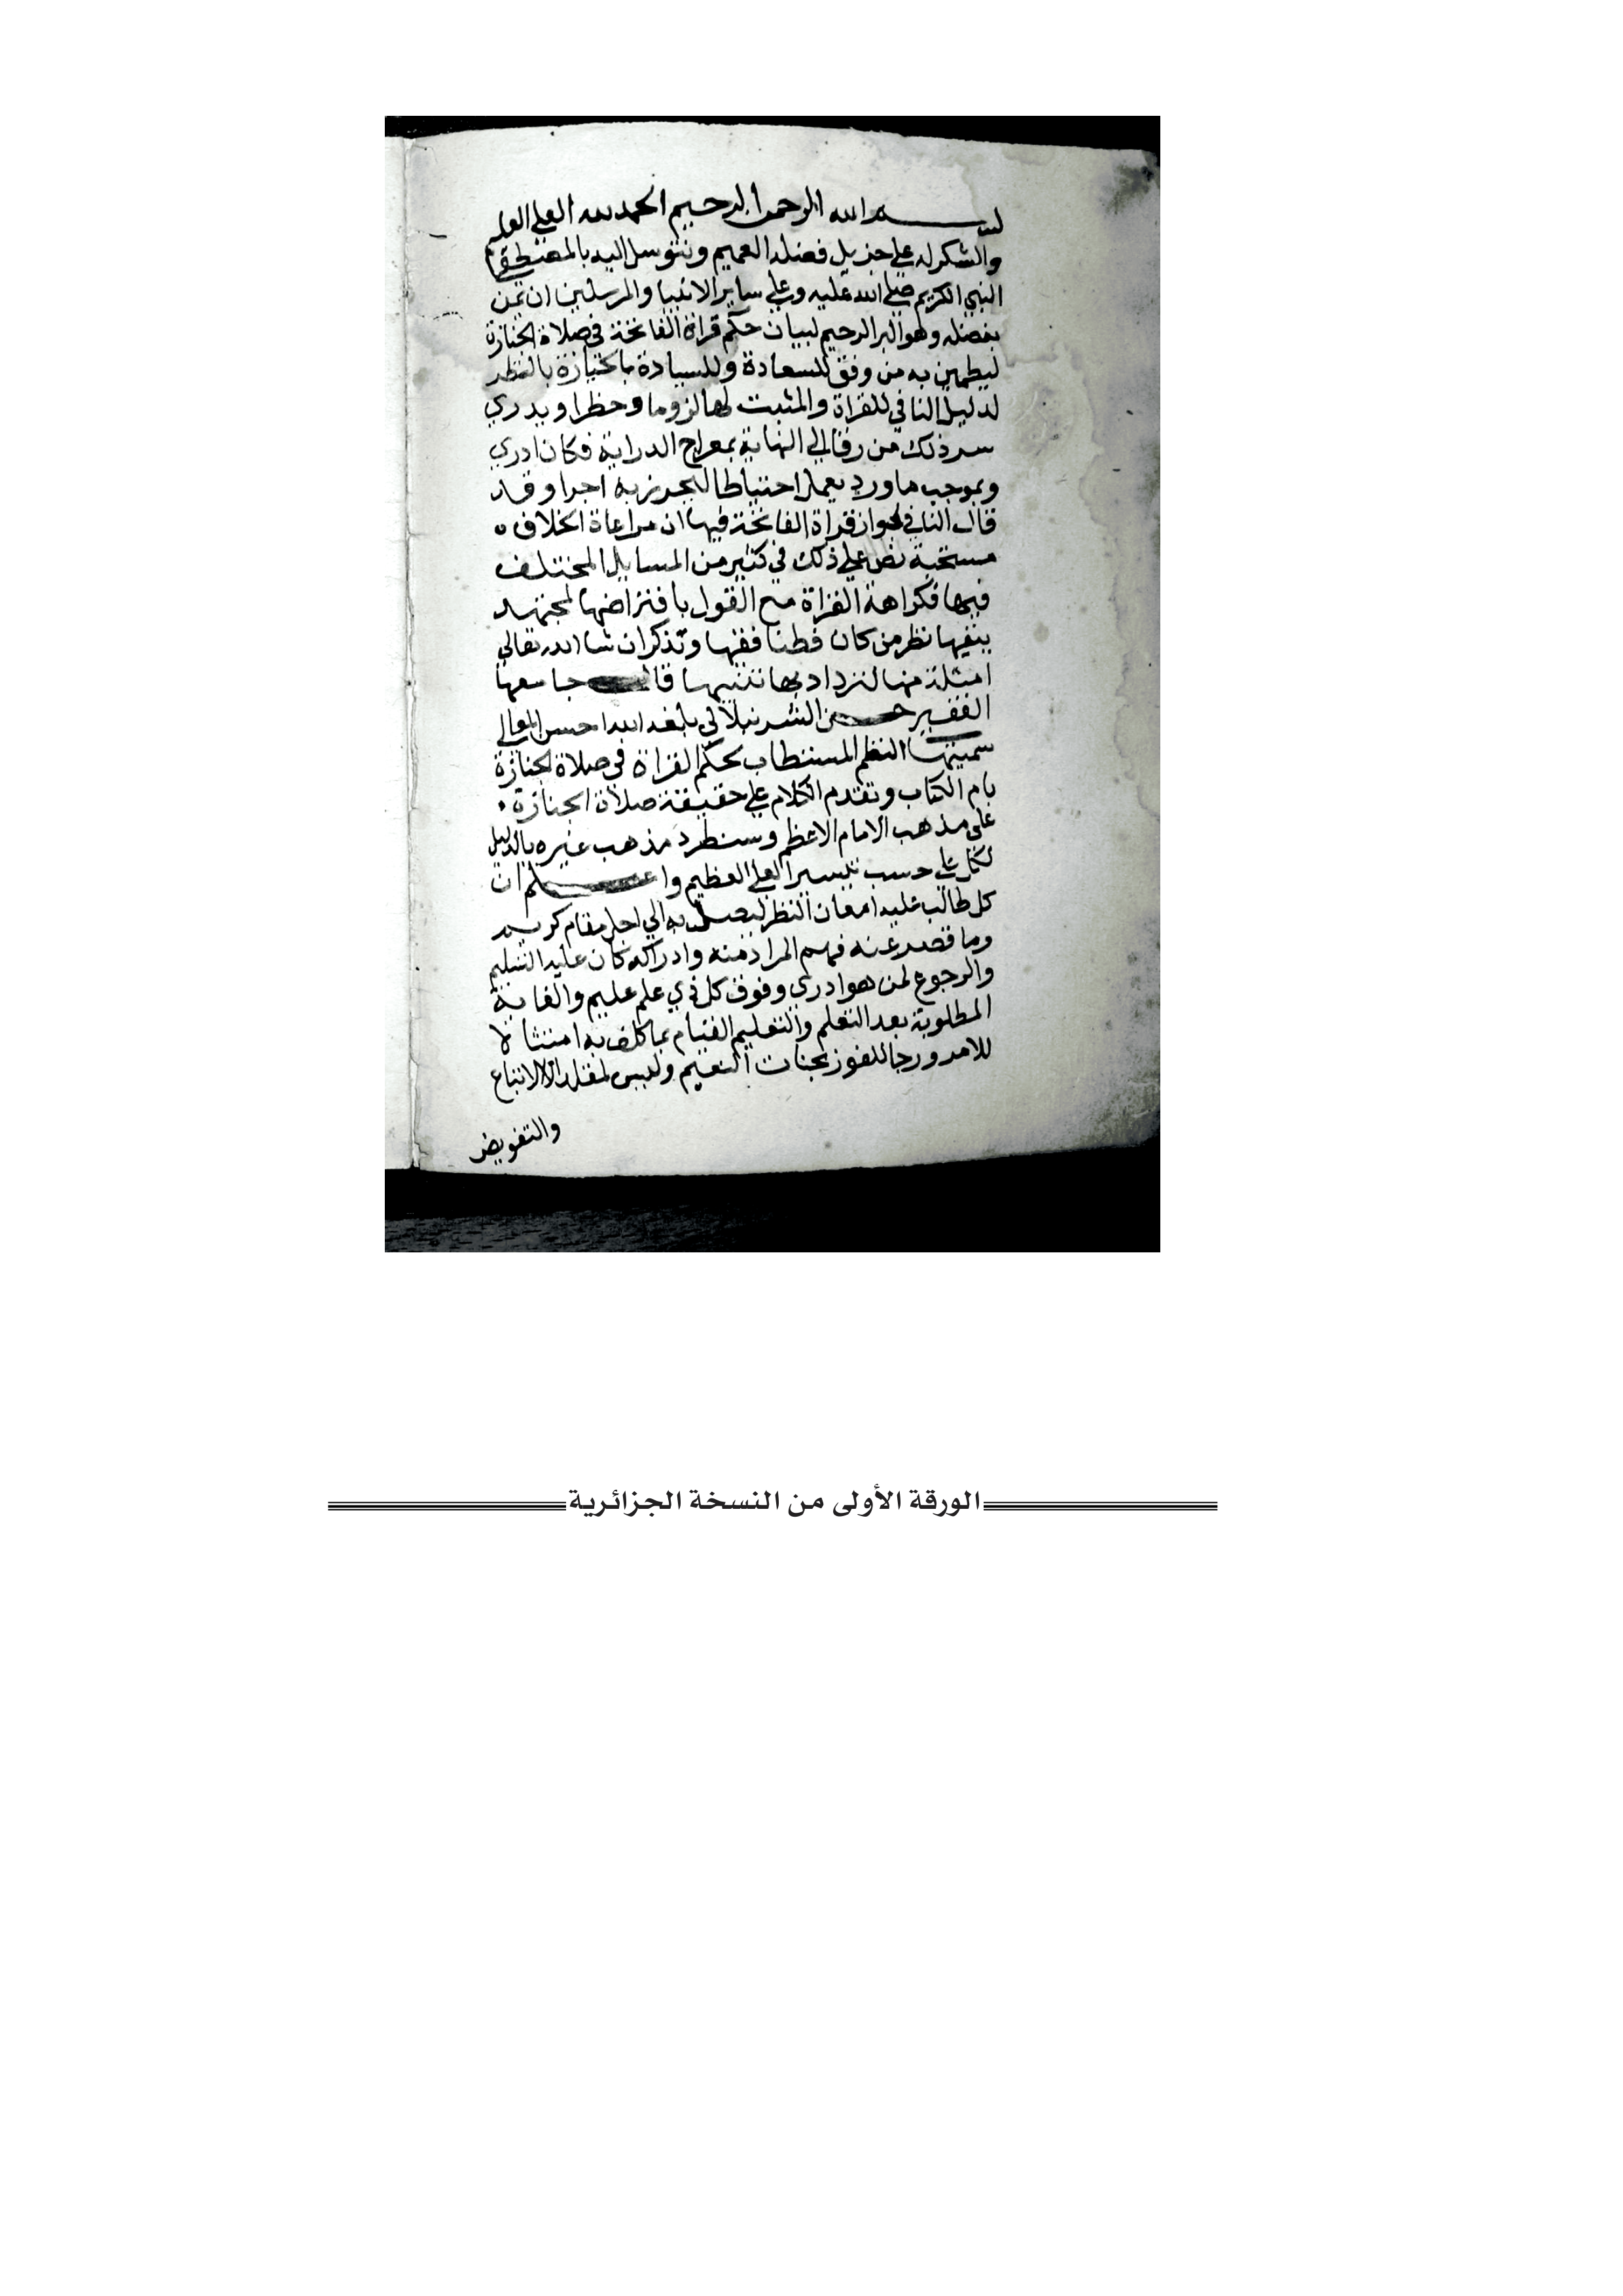 بسم الله الرحمن الرحيم الحمد لله العلي العليم
والشكر له على جزيل فضله العميم ونتوسل اليه بالمصطفى
النبي الكريم صلى الله عليه وعلى ساير الانبيا والمرسلين ان يمن
بفضله وهو البر الرحيم لبيان حكم قراة الفاتحة في صلاة الجنازة
ليطمين به من وفق للسعادة وللسيادة باختيازه بالنظر
لدليل النافي للقراة والمثبت لها لزوما وحظرا ويدري
سر ذلك من رقا الى النهاية بمعراج الدراية فكان ادري
وبموجب ما ورد يعمل احتياطا ليحرز به اجرا وقد
قال النافي لجواز قراة الفاتحة فيها ان مراعاة الخلاف ه
مستحبة نص على ذلك في كثير من المسايل المختلف
فيها فكراهة القراة مع القول بافتراضها لمجتهد
ينفيها نظر من كان فطنا فقها وتذكر ان شا الله تعالى
امثلة منها لتزداد بها تنبيها قال جامعها
الفقير حسن الشرنبلالي بلغه الله احسن
سميتها النظم المستطاب لحكم القراة في صلاة الجنازة
بام الكتاب وتقدم الكلام على حقيقة صلاة الجنازة
على مذهب الامام الاعظم وسنطرد مذهب غيره بالدليل
لكل على حسب تيسير العلي العظيم واعلم ان
كل طالب عليه امعان النظر ليصل به الى اجل مقام كريم
وما قصر عنه فهم المراد منه وادراكه كان عليه التسليم
والرجوع لمن هو ادرى وفوق كل ذي علم عليم والغاية
المطلوبة بعد التعلم والتعليم القيام بما كلف به امتثالا
للامر ورجا للفوز بجنات النعيم وليس لمقلد الا الاتباع
والتفويض
الورقة الأولى من النسخة الجزائرية